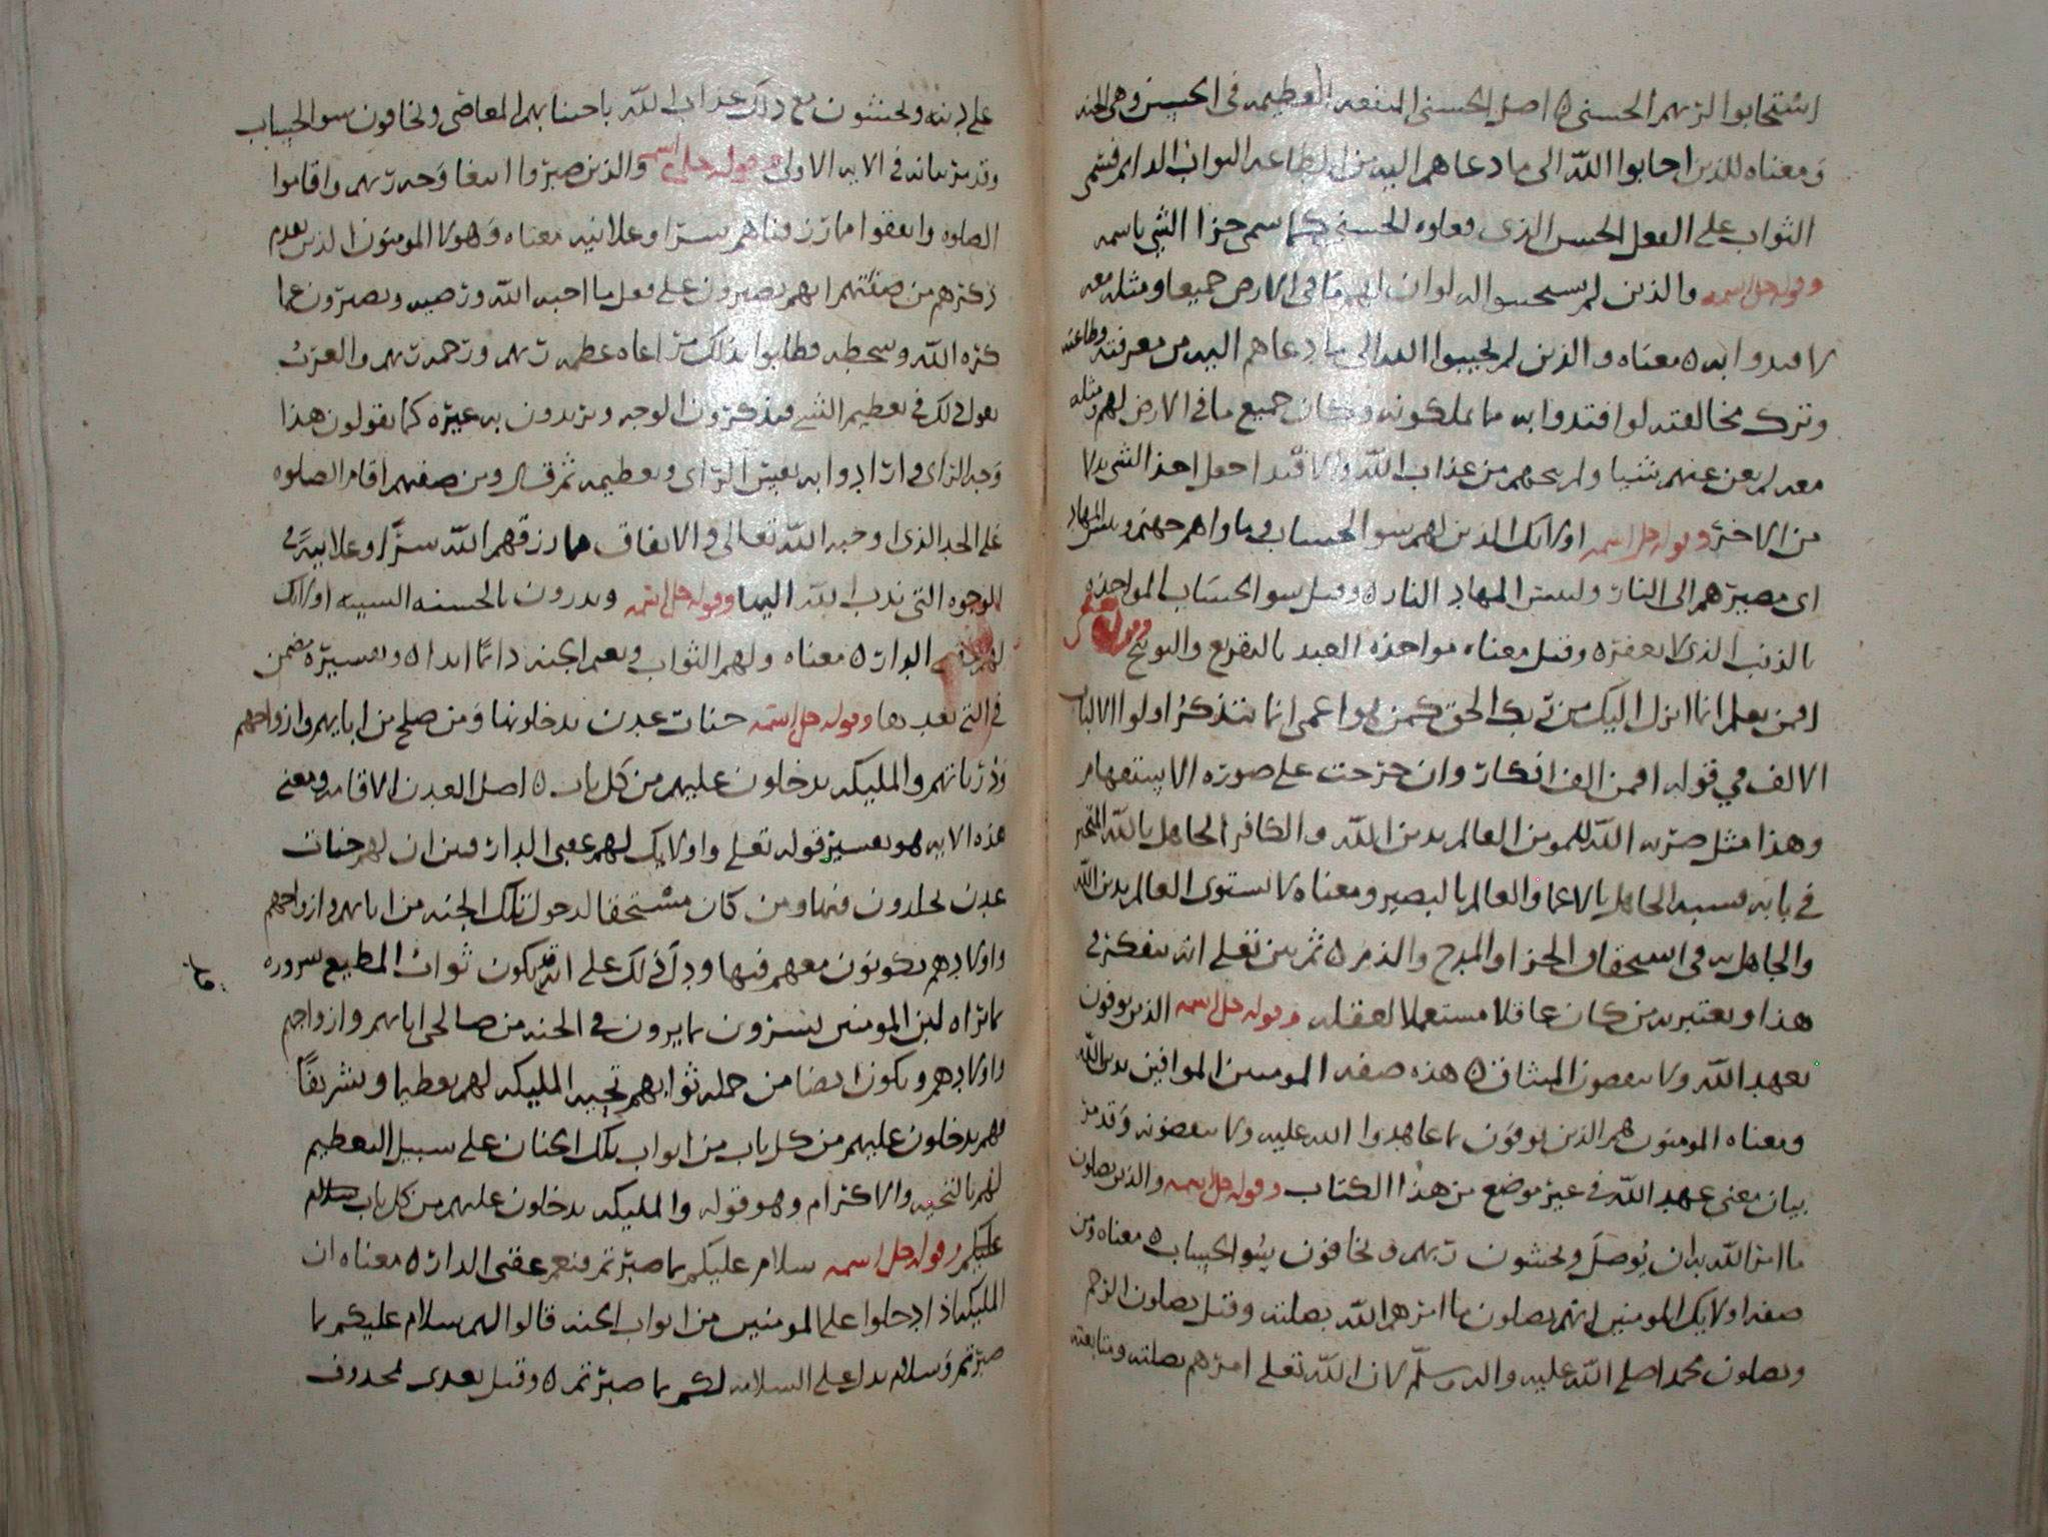 استجابوا لربهم الحسنى ه اصل الحسنى المنفعه العظيمه في الحسن وهي الجنه
ومعناه للذين اجابوا الله الى ما دعاهم اليه من الطاعه الثواب الدايم فسمى
الثواب على الفعل الحسن الذي فعلوه الحسنى كما سمى جزا الشي باسمه
وقوله جل اسمه والذين لم يستجيبوا له لو ان لهم ما في الارض جميعا ومثله معه
لافتدوا به ه معناه والذين لم يجيبوا الله الى ما دعاهم اليه من معرفته وطاعته
وترك مخالفته لو افتدوا به ما يملكونه وكان جميع ما في الارض لهم ومثله
معه لم يغن عنهم شيا ولم ينجهم من عذاب الله والافتدا جعل احد الشي بدلا
من الاخر وقوله جل اسمه اولايك الذين لهم سو الحساب وماواهم جهنم وبئس المهاد
اي مصيرهم الى النار ولبئس المهاد النار ه وقيل سو الحساب المواخذه
بالذنب الذي لا يغفر ه وقيل معناه مواخذه العبد بالتقريع والتوبيخ وقوله
افمن يعلم انما انزل اليك من ربك الحق كمن هو اعمى انما يتذكر اولوا الالباب
الالف في قوله افمن الف انكار وان خرجت على صوره الاستفهام
وهذا مثل ضربه الله للمومن العالم بدين الله والكافر الجاهل بالله المتحير
في بابه فشبه الجاهل بالاعما والعالم بالبصير ومعناه لا يستوى العالم بدين الله
والجاهل به في استحقاق الجزا والمدح والذم ه ثم بين تعلى انه يتفكر في
هذا ويعتبر به من كان عاقلا مستعملا لعقله وقوله جل اسمه الذين يوفون
بعهد الله ولا ينقضون الميثاق ه هذه صفه المومنين الموافين بدين الله
ومعناه المومنون هم الذين يوفون بما عاهدوا الله عليه ولا ينقضونه وقد مر
بيان معنى عهد الله في غير موضع من هذا الكتاب وقوله جل اسمه والذين يصلون
ما امر الله به ان يوصل ويخشون ربهم ويخافون سو الحساب ه معناه ومن
صفه اولايك المومنين انهم يصلون ما امرهم الله بصلته وقيل يصلون الرحم
ويصلون محمدا صلى الله عليه واله وسلم لان الله تعلى امرهم بصلته ومتابعته
على دينه ويخشون مع ذلك عذاب الله باجتنابهم المعاصى ويخافون سو الحساب
وقد مر بيانه في الايه الاولى وقوله جل اسمه والذين صبروا ابتغا وجه ربهم واقاموا
الصلوه وانفقوا مما رزقناهم سرا وعلانيه معناه وهولا المومنون الذين تقدم
ذكرهم من صفتهم انهم يصبرون على فعل ما احبه الله ورضيه ويصبرون عما
كره الله وسخطه وطلبوا بذلك مراعاه عظمه ربهم ورحمه ربهم والعرب
تقول ذلك في تعظيم الشي فيذكرون الوجه ويريدون به غيره كما يقولون هذا
وجه الراي وارادوا به نفس الراي وتعظيمه ثم قال ومن صفتهم اقام الصلوه
على الحد الذي اوجبه الله تعالى والانفاق مما رزقهم الله سرا وعلانيه في
الوجوه التي ندب الله اليها وقوله جل اسمه ويدرون بالحسنه السيئه اولايك
لهم عقبى الدار ه معناه ولهم الثواب ونعيم الجنه دايما ابدا ه وتفسيره مضمن
في التي بعدها وقوله جل اسمه جنات عدن يدخلونها ومن صلح من ابايهم وازواجهم
وذرياتهم والمليكه يدخلون عليهم من كل باب ه اصل العدن الاقامه ومعنى
هذه الايه هو تفسير قوله تعلى واولايك لهم عقبى الدار فبين ان لهم جنات
عدن يخلدون فيها ومن كان مستحقا لدخول تلك الجنه من ابايهم وازواجهم
واولادهم يكونون معهم فيها ودل ذلك على انه قد يكون ثواب المطيع سروره
بما يراه لان المومنين يسرون بما يرون في الجنه من صالحى ابايهم وازواجهم
واولادهم ويكون ايضا من جمله ثوابهم تحيه المليكه لهم تعظيما وتشريفا
فهم يدخلون عليهم من كل باب من ابواب تلك الجنان على سبيل التعظيم
لهم بالتحيه والاكرام وهو قوله والمليكه يدخلون عليهم من كل باب سلام
عليكم وقوله جل اسمه سلام عليكم بما صبرتم فنعم عقبى الدار ه معناه ان
المليكه اذا دخلوا على المومنين من ابواب الجنه قالوا لهم سلام عليكم بما
صبرتم وسلام يدل على السلامه لكم بما صبرتم ه وقيل بعدى محذوف